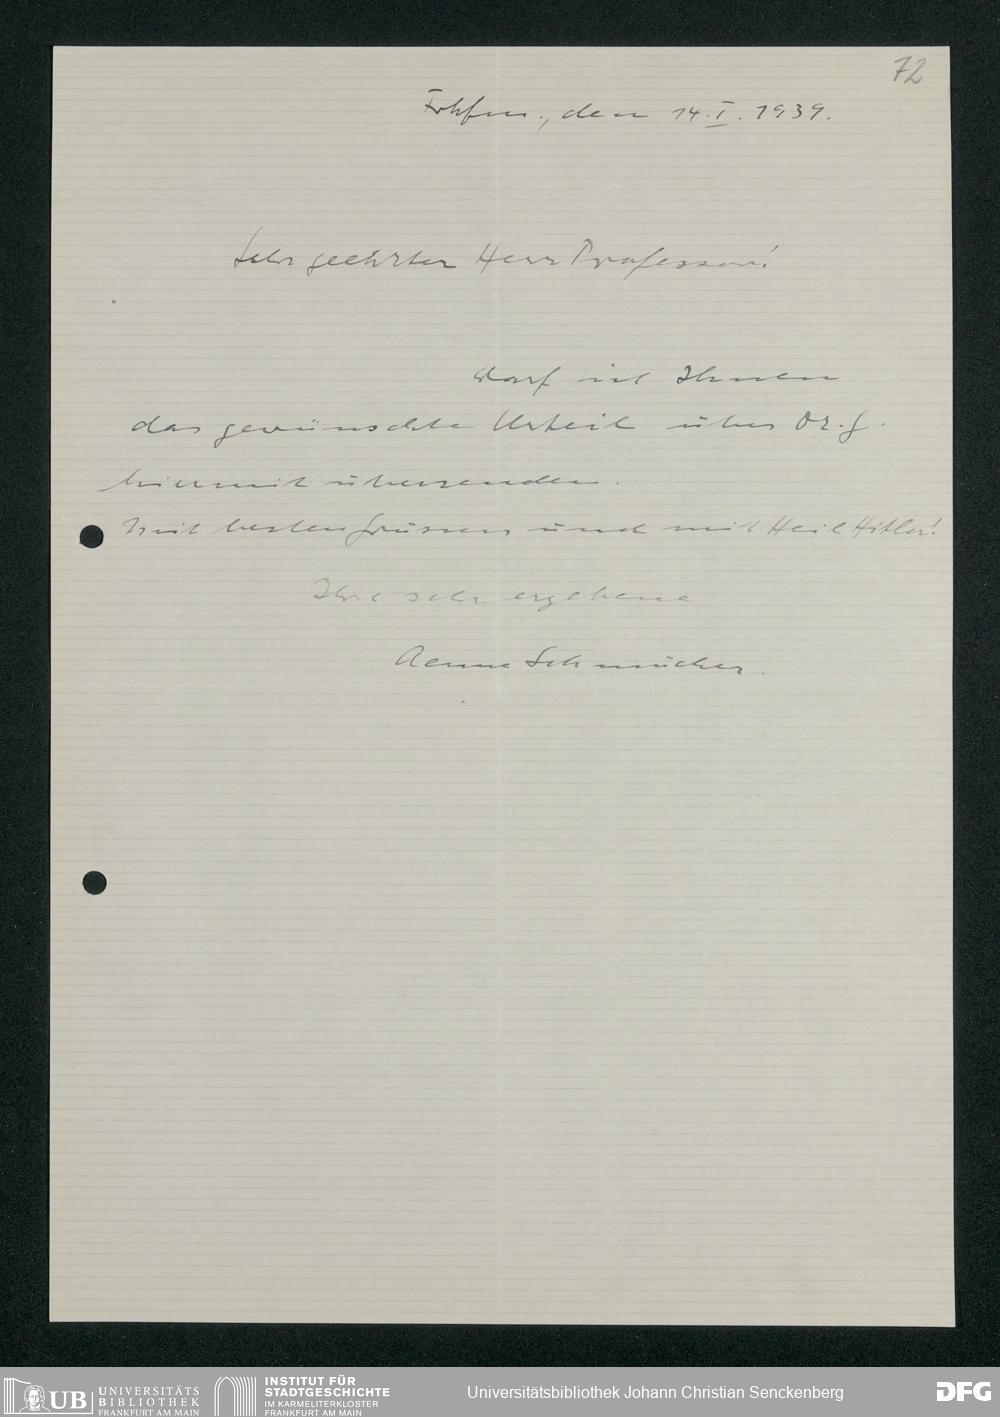 72
Frkfm., den 14.I.1939.
Sehr geehrter Herr Professor!
darf ich Ihnen
das gewünschte Urteil über Dr. G.
hiermit übersenden.
Mit besten Grüssen und mit Heil Hitler!
Ihre sehr ergebene
Aenne Schmücker.
UB UNIVERSITÄTS
BIBLIOTHEK
FRANKFURT AM MAIN
INSTITUT FÜR
STADTGESCHICHTE
IM KARMELITERKLOSTER
FRANKFURT AM MAIN
Universitätsbibliothek Johann Christian Senckenberg
DFG